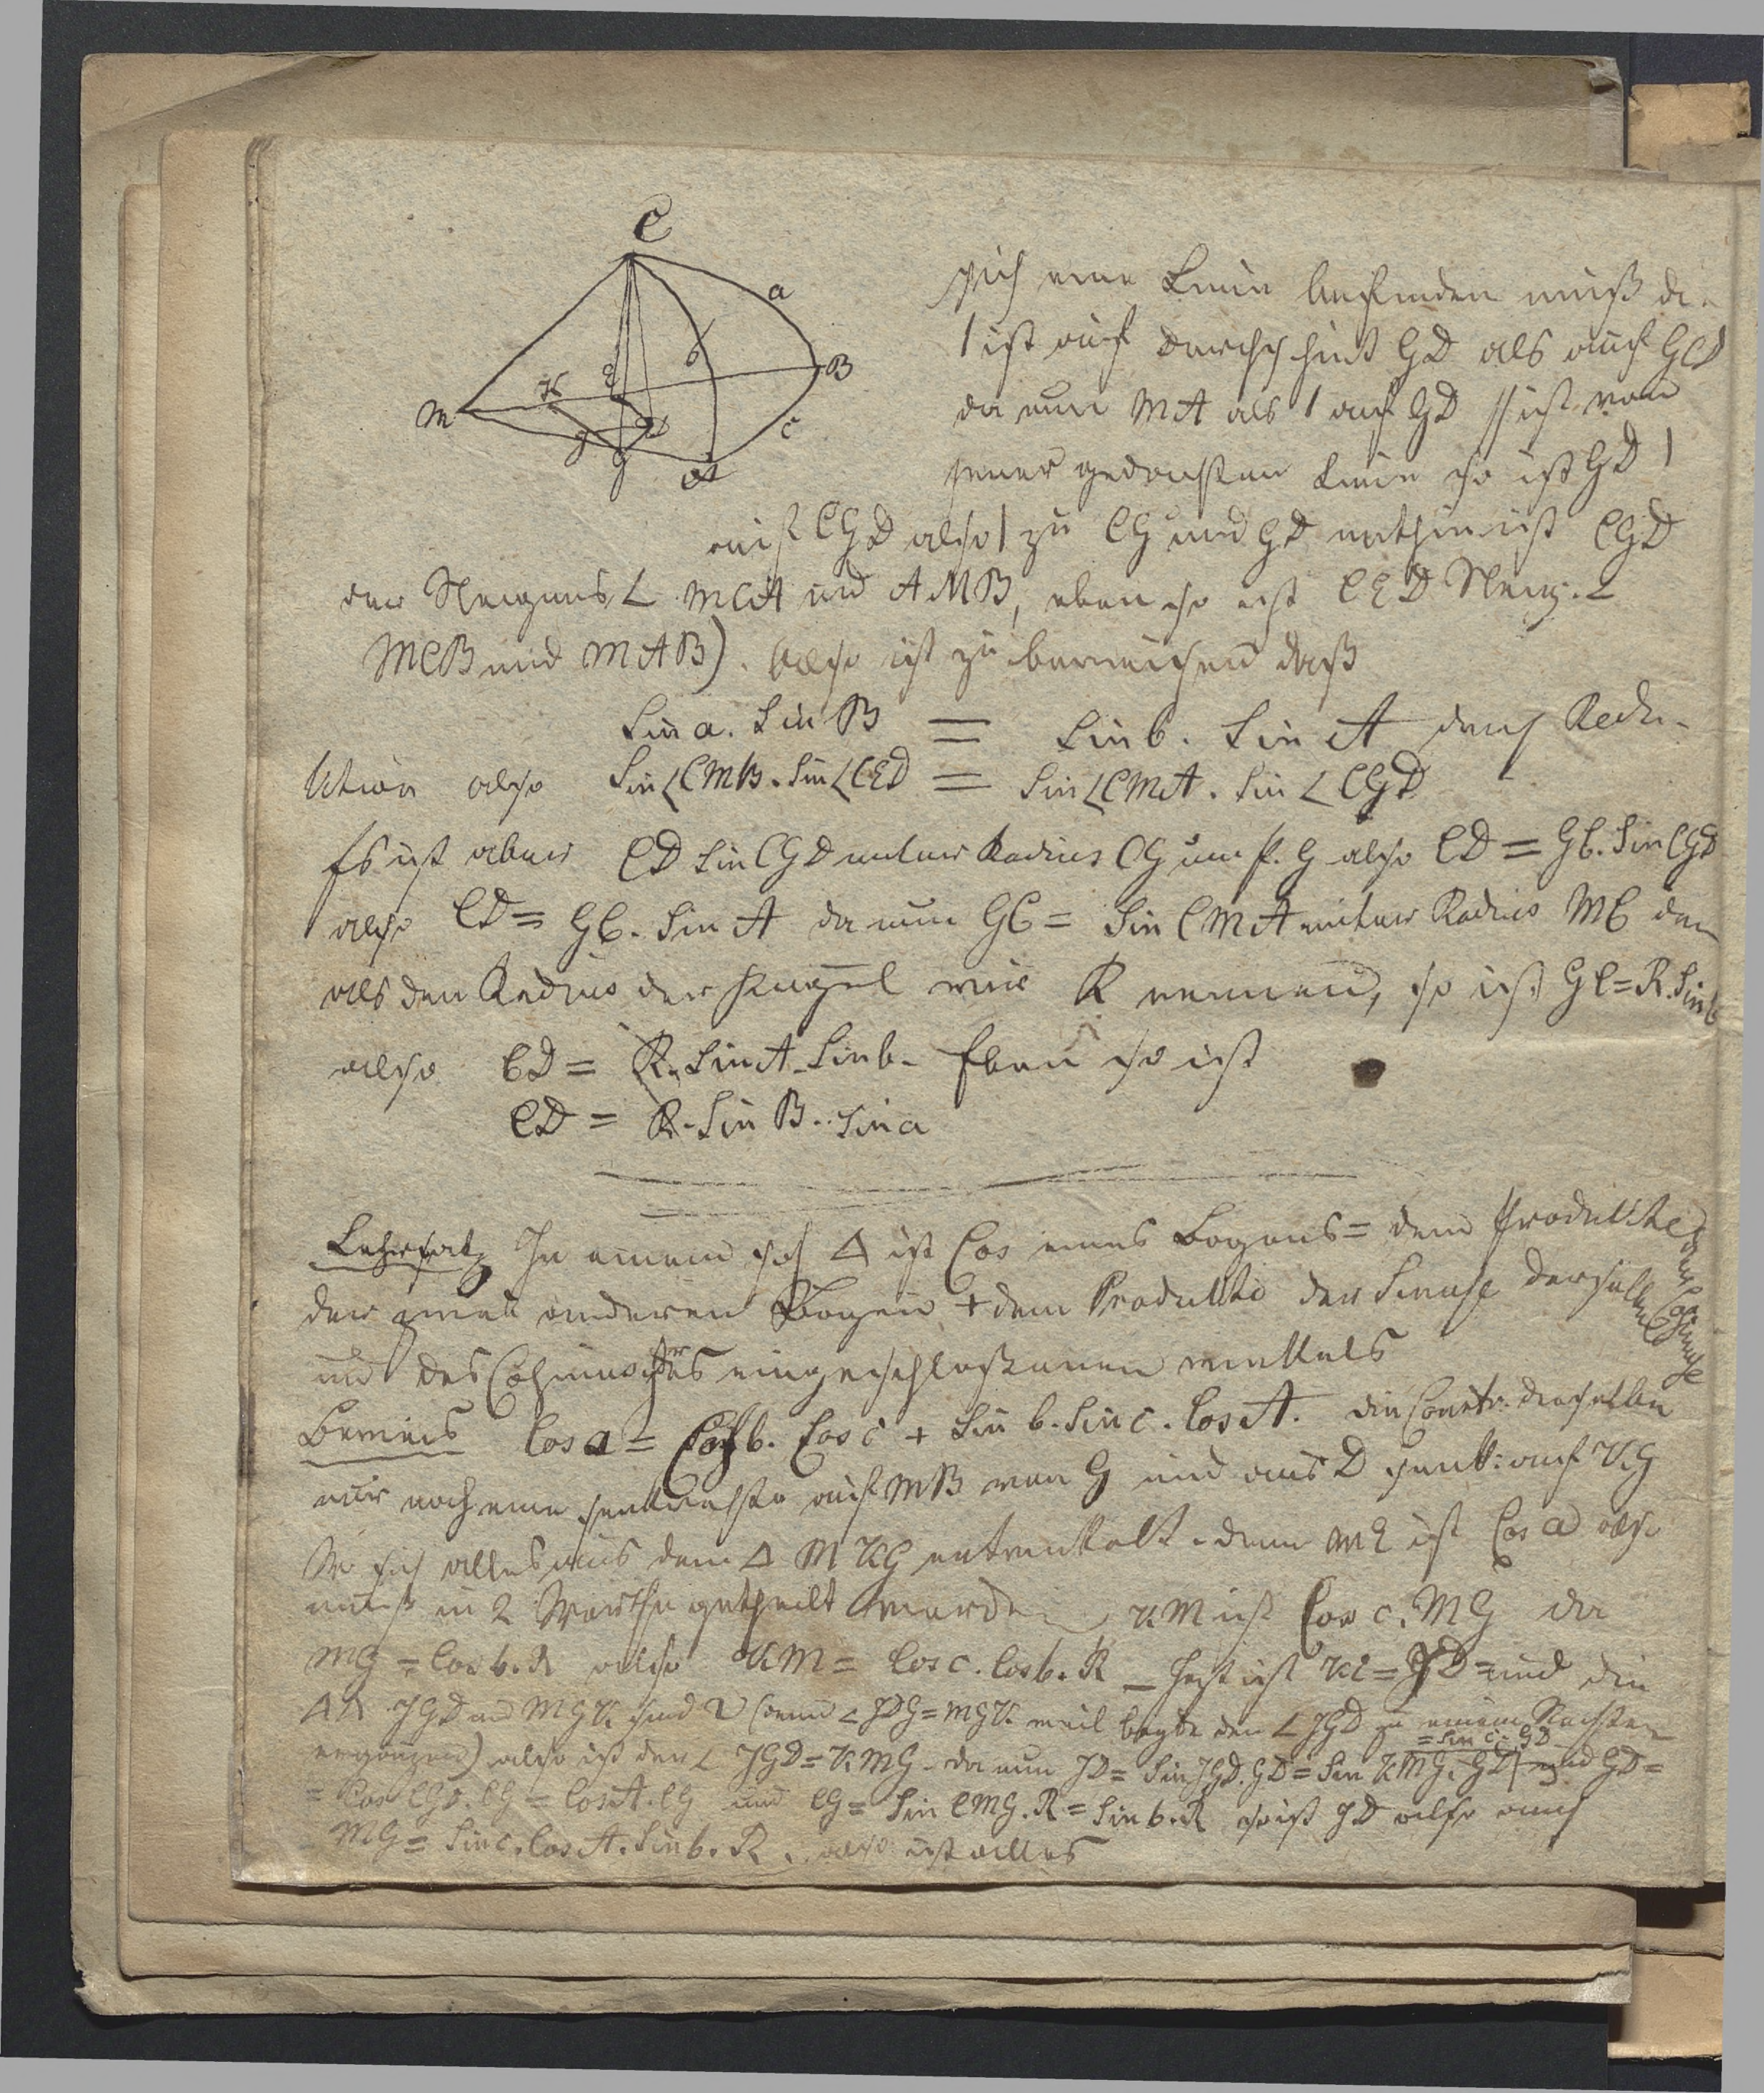 C
a
b
B
K
E
M
D
c
J
G
A
sich eine Linie befinden muß die
⊥ ist auf GD als auch GC
da nun MA als ⊥ auf GD ist von
jener gedachten Linie so ist GD ⊥
auf CGD also ⊥ zu CG und GD mithin ist CGD
der Neigungs∠ MCA und AMB, eben so ist CED Neig.∠
MCB und MAB). Also ist zu beweisen daß
Sin a. Sin B = Sin b. Sin A durch Redu-
ktion also Sin∠CMB. Sin∠CED = Sin∠CMA. Sin∠CGD
Es ist aber CD Sin CGD unter Radius CG um P. G also CD = GC. Sin CGD
also CD = GC. Sin A da nun GC = Sin CMA unter Radius MC den
als den Radius der Kugel wir R nennen, so ist GC = R. Sin b
also CD = R. Sin A. Sin b. Eben so ist
CD = R. Sin B. Sin a
Lehrsatz In einem sph Δ ist Cos eines Bogens = dem Produkte der Cosinuse
der zwei anderen Bogen + dem Produkte der Sinuse derselben
und des Cosinus des eingeschlossenen Winkels
Beweis Cos a = Cos b. Cos c + Sin b. Sin c. Cos A. die Constr. dieselbe
nur noch eine senkrechte auf MB von G und aus D senk: auf KG
sich alles aus dem Δ MKG entwickelt. denn ME ist Cos a also
muß in 2 Werthe getheilt werden KM ist Cos c. MG da
MG = Cos b. R also KM = Cos c. Cos b. R — ist KE = JD und die
ΔΔ JGD und MGK sind ∽ (denn ∠ JDG = MGK weil beyde den ∠ JGD zu einem Rechten
= Sin c. GD
ergänzen) also ist der ∠ JGD = KMG. da nun JD = Sin JGD. GD = Sin KMG. GD und GD =
= Cos CGD. CG = Cos A. CG und CG = Sin CMG. R = Sin b. R so ist JD also auch
MG = Sin c. Cos A. Sin b. R. also ist alles